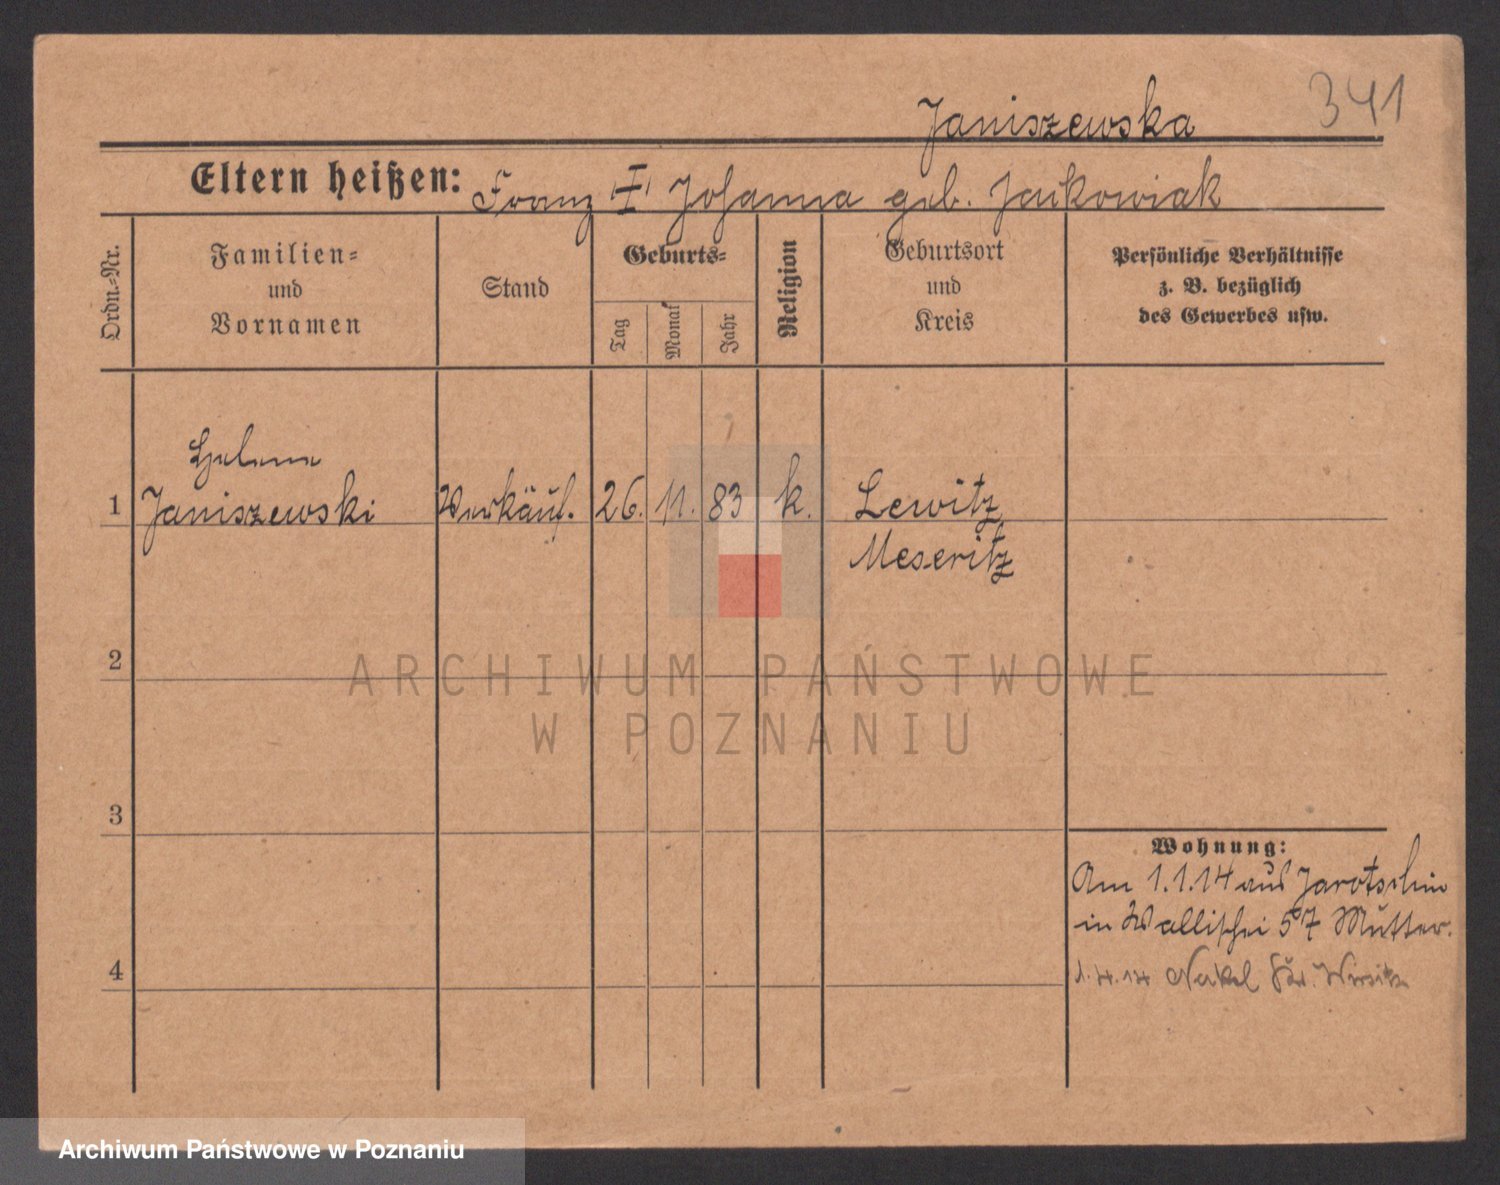 341
Janiszewska
Eltern heißen: Franz Johanna geb. Jankowiak
Ordn.-Nr.
Familien-
und
Vornamen
Stand
Geburts-
Tag
Monat
Jahr
Religion
Geburtsort
und
Kreis
Persönliche Verhältnisse
z. B. bezüglich
des Gewerbes usw.
Helene
1 Janiszewski Verkäuf. 26. 11. 83 k. Lewitz
Meseritz
2
ARCHIWUM PAŃSTWOWE
W POZNANIU
3
Wohnung:
Am 1.1.14 aus Jarotschin
in Wallischei 57 Mutter.
4
1.4.14 Nakel Kr. Wirsitz
Archiwum Państwowe w Poznaniu